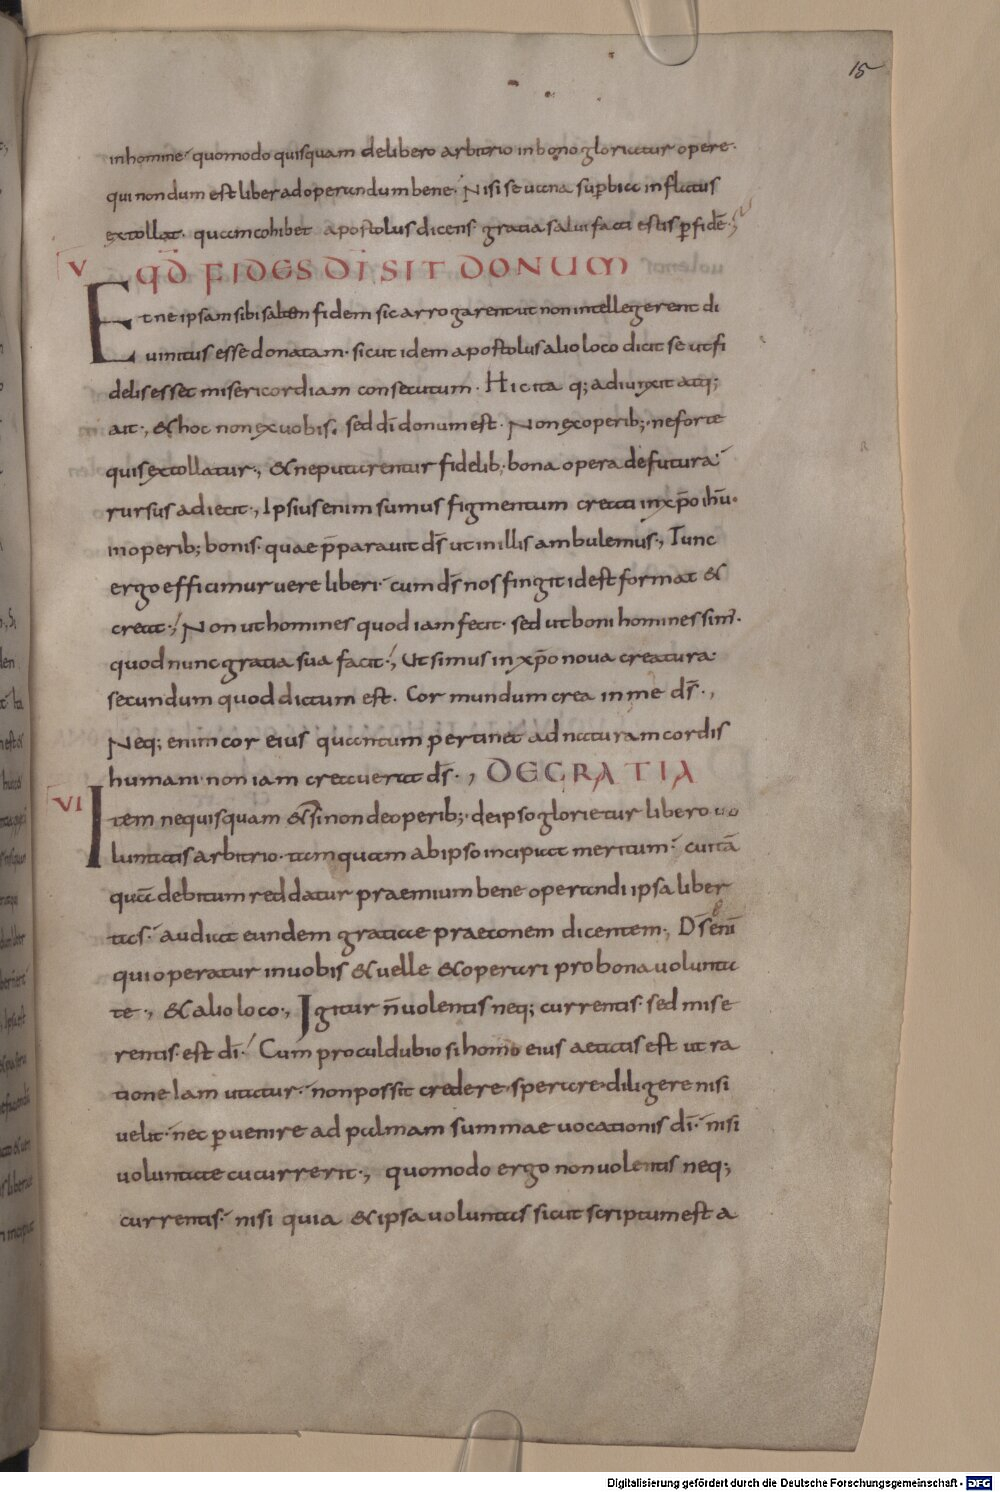 15
inhomine· quomodo quisquam delibero arbitrio inbono glorietur opere·
qui nondum est liber ad operandum bene· Nisi se uana sup̄bia inflatus
extollat· quam cohibet apostolus dicens· gratia saluifacti estis p̄ fidē·
V QD̄ FIDES DĪ SIT DONUM
Et ne ipsam sibi saltem fidem sic arrogarent ut non intellegerent di
uinitus esse donatam· sicut idem apostolus alio loco dicit se ut fi
delis esset misericordiam consecutum· Hic ita q; adiunxit atq;
ait·, & hoc non ex uobis· sed dī donum est· Non ex operib;· ne forte
quis extollatur·, & ne putarentur fidelib; bona opera defutura·
rursus adiecit·, Ipsius enim sumus figmentum creati in xp̄o ih̄u·
in operib; bonis· quae p̄parauit d̄s ut in illis ambulemus·, Tunc
ergo efficimur uere liberi· cum d̄s nos fingit id est format &
creat·, Non ut homines quod iam fecit· sed ut boni homines sim̄·
quod nunc gratia sua facit·, Ut simus in xp̄o noua creatura·
secundum quod dictum est· Cor mundum crea in me d̄s·,
Neq; enim cor eius quantum pertinet ad naturam cordis
humani non iam creauerat d̄s·, DE GRATIA
VI Item ne quisquam &si non de operib;· de ipso glorietur libero uo
luntatis arbitrio· tamquam ab ipso incipiat meritum· cui tā
quā debitum reddatur praemium bene operandi ipsa liber
tas· audiat eundem gratiae praeconem dicentem·, D̄s enī
qui operatur in uobis & uelle & operari pro bona uolunta
te·, & alio loco·, Igitur n̄ uolentis neq; currentis· sed mise
rentis· est dī· Cum proculdubio si homo eius aetatis est ut ra
tione iam utatur· non possit credere· sperare· diligere nisi
uelit· nec p̄uenire ad palmam summae uocationis dī· nisi
uoluntate cucurrerit·, quomodo ergo non uolentis neq;
currentis· nisi quia & ipsa uoluntas sicut scriptum est a
Digitalisierung gefördert durch die Deutsche Forschungsgemeinschaft - DFG